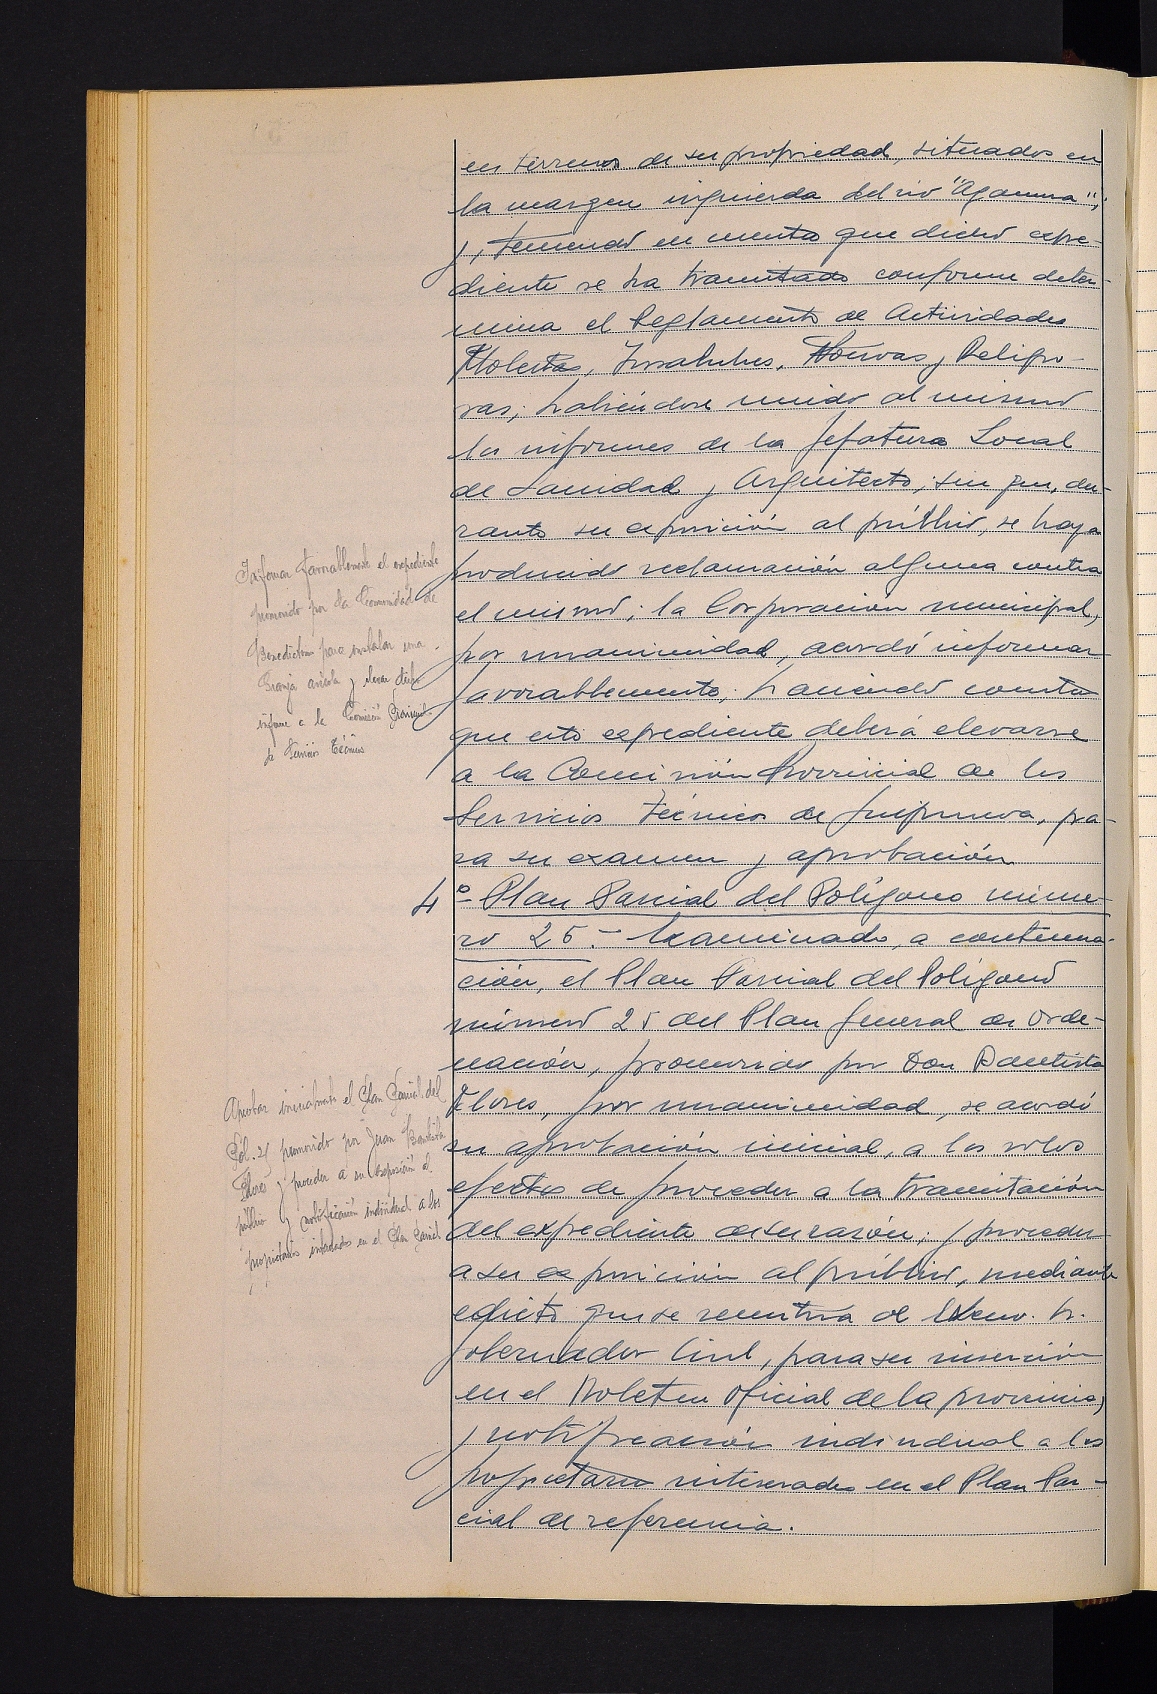 en terrenos de su propiedad, situados en
la margen izquierda del rio "Agauna";
y, teniendo en cuenta que dicho expe-
diente se ha tramitado conforme deter-
mina el Reglamento de Actividades
Molestas, Insalubres, Nocivas y Peligro-
sas; habiéndose unido al mismo
los informes de la Jefatura Local
de Sanidad y Arquitecto; sin que, du-
rante su exposición al público, se haya
Informar favorablemente el expediente
promovido por la Comunidad de
Benedictinos para instalar una
Granja avícola y elevar dicho
informe a la Comisión Provincial
de Servicios Técnicos
producido reclamación alguna contra
el mismo; la Corporación municipal,
por unanimidad, acordó informar
favorablemente; haciendo constar
que este expediente deberá elevarse
a la Comisión Provincial de los
Servicios Técnicos de Guipuzcoa, pa-
ra su examen y aprobación
4º Plan Parcial del Polígono núme-
ro 25.- Examinado, a continua-
ción, el Plan Parcial del Polígono
número 25 del Plan General de Orde-
nación, promovido por Don Bautista
Aprobar inicialmente el Plan Parcial del
Pol. 25 promovido por Juan Bautista
Flores y proceder a su exposición al
público y notificación individual a los
propietarios interesados en el Plan Parcial
Flores, por unanimidad, se acordó
su aprobación inicial, a los solos
efectos de proceder a la tramitación
del expediente de su razón; y proceder
a su exposición al público, mediante
edicto que se remitirá al Excmo. Sr.
Gobernador Civil, para su inserción
en el Boletin Oficial de la provincia,
y notificación individual a los
propietarios interesados en el Plan Par-
cial de referencia.